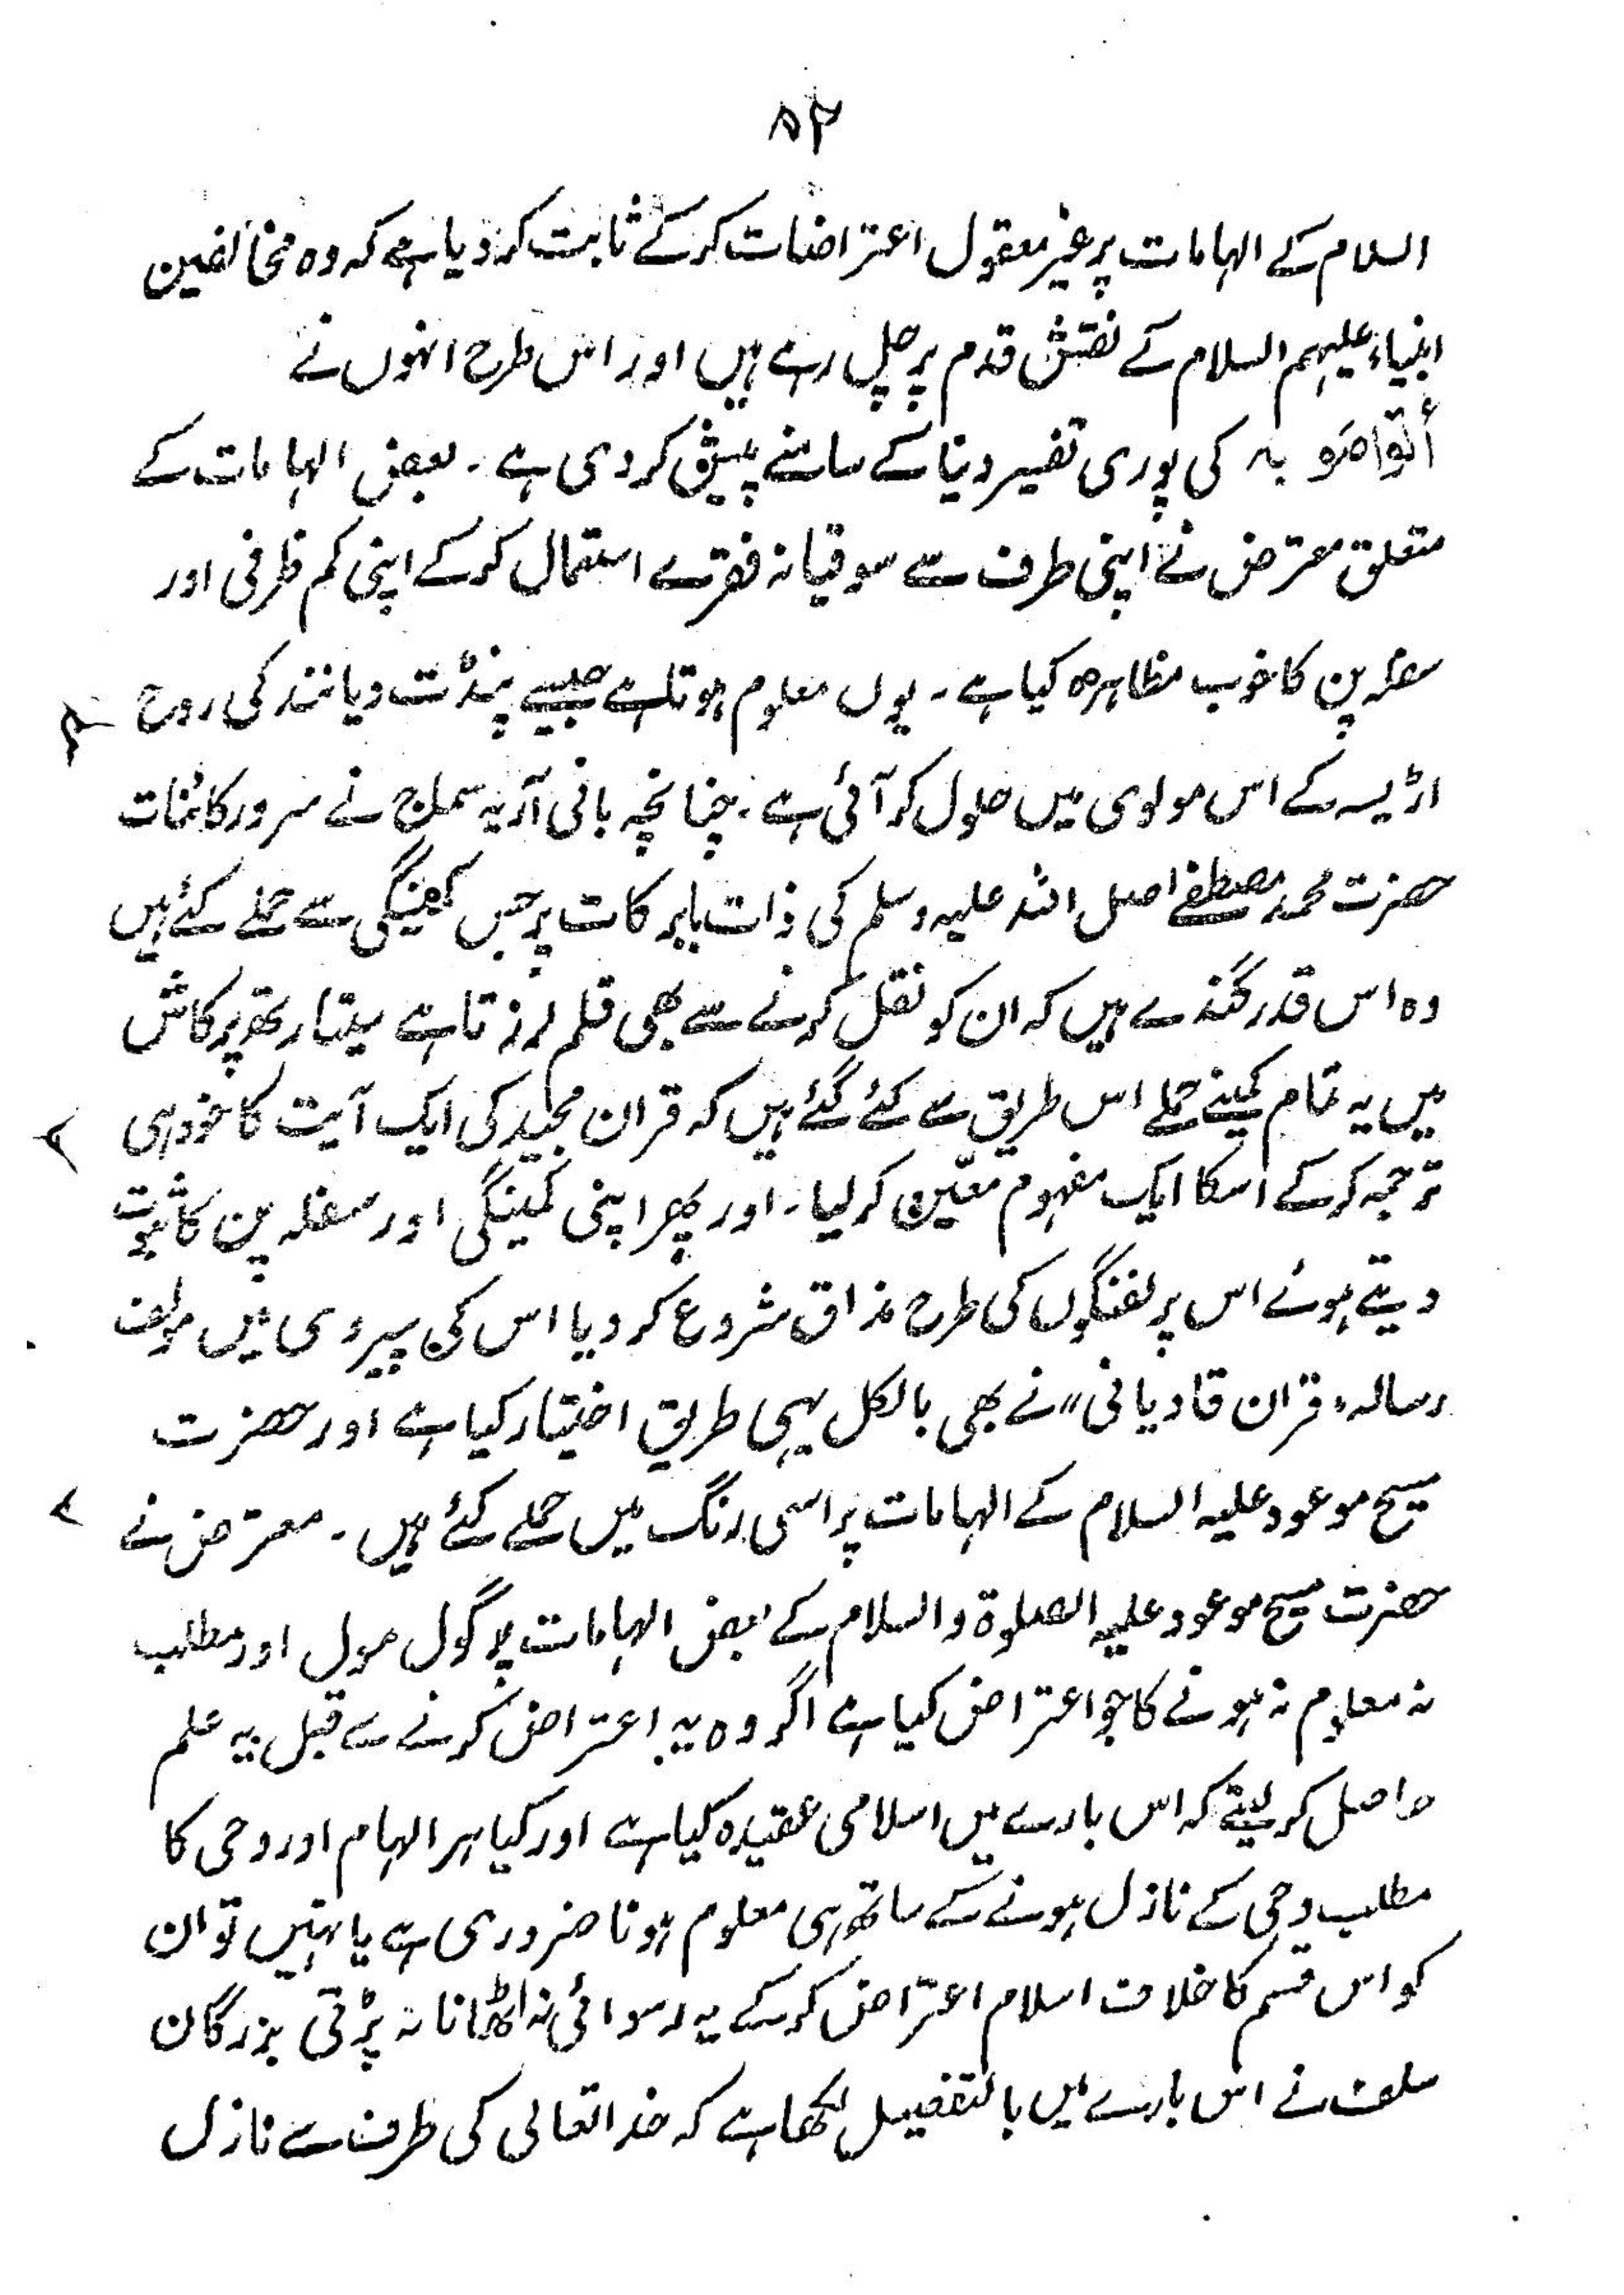 ۸۲
السلام کے الہامات پر غیر معقول اعتراضات کرکے ثابت کردیا ہے کہ وہ مخالفین
انبیاء علیہم السلام کے نقش قدم پر چل رہے ہیں اور اس طرح انہوں نے
أتواصَو بہ کی پوری تفسیر دنیا کے سامنے پیش کر دی ہے ۔ بعض الہامات کے
متعلق معترض نے اپنی طرف سے سوقیانہ فقرے استعمال کرکے اپنی کم ظرفی اور
سفلہ پن کا خوب مظاہرہ کیا ہے ۔ یوں معلوم ہوتا ہے جیسے پنڈت دیانند کی روح
اڑیسہ کے اس مولوی میں حلول کر آئی ہے ۔ چنانچہ بانی آریہ سماج نے سرور کائنات
حضرت محمد مصطفےٰ اصل اللہ علیہ وسلم کی ذات بابرکات پر جس کمینگی سے حملے کئے ہیں
وہ اس قدر گندے ہیں کہ ان کو نقل کرنے سے بھی قلم لرزتا ہے ستیارتھ پرکاش
میں یہ تمام کمینے حملے اس طریق سے کئے گئے ہیں کہ قران مجید کی ایک آیت کا خود ہی
ترجمہ کرکے اسکا ایک مفہوم معیّن کرلیا ۔ اور پھر اپنی کمینگی اور سفلہ پن کا ثبوت
دیتے ہوئے اس پر لفنگوں کی طرح مذاق شروع کر دیا اس کی پیروی میں مولف
رسالہ ،، قران قادیانی ،، نے بھی بالکل یہی طریق اختیار کیا ہے اور حضرت
مسیح موعود علیہ السلام کے الہامات پر اسی رنگ میں حملے کئے ہیں ۔ معترض نے
حضرت مسیح موعود علیہ الصلوۃ والسلام کے بعض الہامات پر گول مول اور مطلب
نہ معلوم نہ ہونے کا جو اعتراض کیا ہے اگر وہ یہ اعتراض کرنے سے قبل یہ علم
حاصل کر لیتے کہ اس بارے میں اسلامی عقیدہ کیا ہے اور کیا ہر الہام اور وحی کا
مطلب وحی کے نازل ہونے کے ساتھ ہی معلوم ہونا ضروری ہے یا نہیں تو ان
کو اس قسم کا خلاف اسلام اعتراض کرکے یہ رسوائی نہ اٹھانا نہ پڑتی بزرگان
سلف نے اس بارے میں بالتفصیل لکھا ہے کہ خدا تعالی کی طرف سے نازل